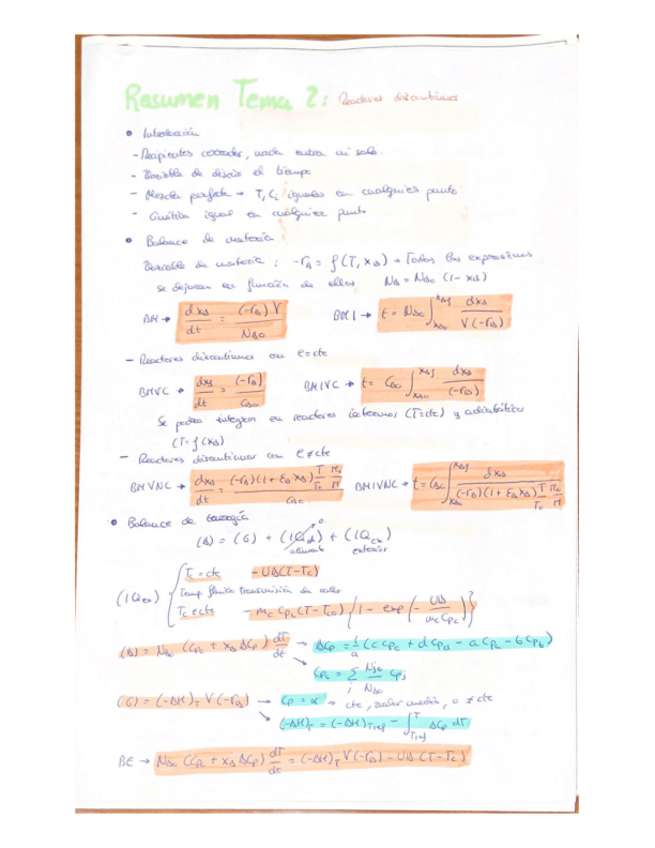 Resumen Tema 2: Reactores discontinuos
• Introducción
- Recipientes cerrados, nada entra ni sale.
- Variable de diseño el tiempo
- Mezcla perfecta → T, Ci iguales en cualquier punto
- Cinética igual en cualquier punto
• Balance de materia
Variable de materia: -rA = f(T, XA) → Todas las expresiones
se dejaran en función de ellas NA = NAo (1-XA)
BM → dXA/dt = (-rA) V / NAo BMI → t = NAo ∫XAo^XAf dXA / V(-rA)
- Reactores discontinuos con ρ=cte
BMVC → dXA/dt = (-rA)/CAo BMIVC → t = CAo ∫XAo^XAf dXA/(-rA)
Se podra integrar en reactores isotermos (T=cte) y adiabáticos
(T=f(XA)
- Reactores discontinuos con ρ≠cte
BMVNC → dXA/dt = (-rA)(1+εA XA) T/To πo/π / CAo BMIVNC → t = CAo ∫XAo^XAf dXA / (-rA)(1+εA XA) T/To πo/π
• Balance de energía
(A) = (G) + (IQal) + (IQex)
0
alimento exterior
(IQex) { Tc = cte - UA(T-Tc)
Temp. fluido transmisión de calor
Tc ≠ cte - mc Cpc (T-Tco) {1 - exp(- UA / mc Cpc)}
(A) = NAo (CpA + XA ΔCp) dT/dt → ΔCp = 1/a (c Cpc + d Cpd - a Cpa - b Cpb)
↘ CpA = Σj Njo/NAo Cpj
(G) = (-ΔH)T V(-rA) → Cp = α → cte, valor medio, o ≠ cte
↘ (-ΔH)T = (-ΔH)Tref - ∫Tref^T ΔCp dT
BE → NAo (CpA + XA ΔCp) dT/dt = (-ΔH)T V(-rA) - UA (T-Tc)